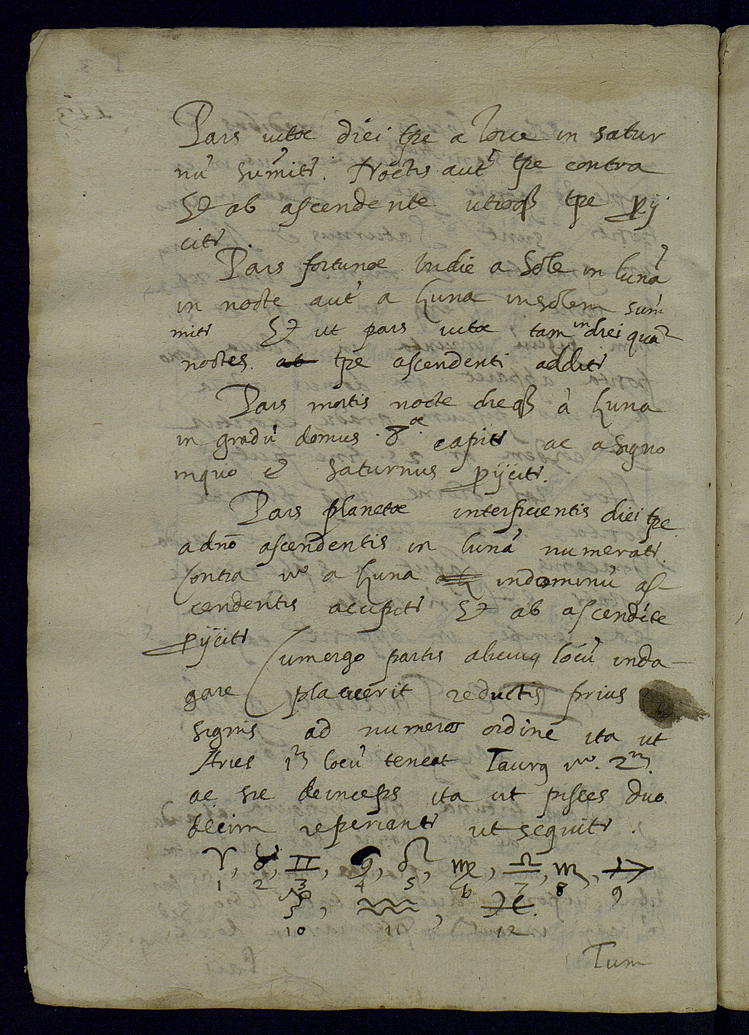 Pars vitæ diei tp̄e a Iove in satur
nū sumitr. Noctis aut̄ tp̄e contra
Et ab ascendente utroqȝ tp̄e pij
citr.
Pars fortunæ in die a Sole in lunā
in nocte aut̄ a Luna in solem sum
mitr Et ut pars vitæ tam in diei quā
noctes tp̄e ascendenti additr
Pars mortis nocte dieqȝ à Luna
in gradū domus 8æ. capitr ac a signo
in quo ē Saturnus pijcitr.
Pars planetæ interficientis diei tp̄e
a dnō ascendentis in lunā numeratr.
Contra vo a Luna in dominū as-
cendentis accipitr Et ab ascendēte
pijcitr
Cum ergo partis alicuiq locū inda-
gare placuerit reductis prius
signis ad numeros ordine ita ut
Aries 1m locū teneat Taurq vo. 2m.
ac sic deinceps ita ut pisces duo
decim reperiantr ut sequitr.
♈, ♉, ♊, ♋, ♌, ♍, ♎, ♏, ♐
1 2 3 4 5 6 7 8 9
♑, ♒, ♓.
10 11 12
Tum